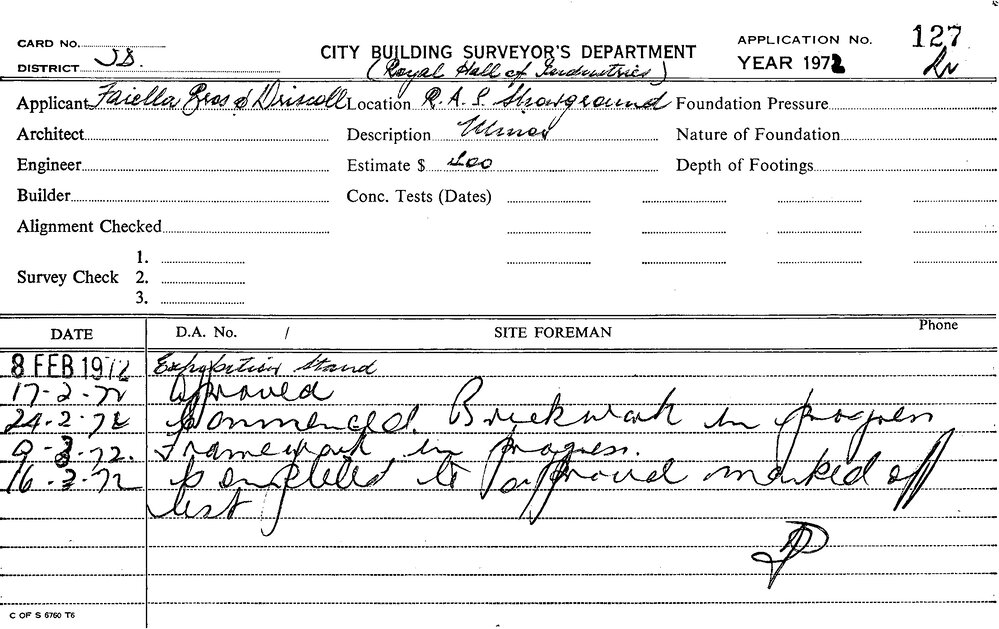 CARD No.
DISTRICT
CITY BUILDING SURVEYOR'S DEPARTMENT
(Royal Hall of Industries)
APPLICATION No. 127
YEAR 1972
Applicant Faiella Bros & Driscoll Location R.A.S. Showground Foundation Pressure
Architect Description Minor Nature of Foundation
Engineer Estimate $ 200 Depth of Footings
Builder Conc. Tests (Dates)
Alignment Checked
1.
Survey Check 2.
3.
DATE D.A. No. / SITE FOREMAN Phone
8 FEB 1972 Exhibition Stand
17-2-72 Approved
24-2-72 Commenced. Brickwork in progress
9-3-72. Framework in progress.
16-3-72 Completed to approval marked off
list
C OF S 6760 T6